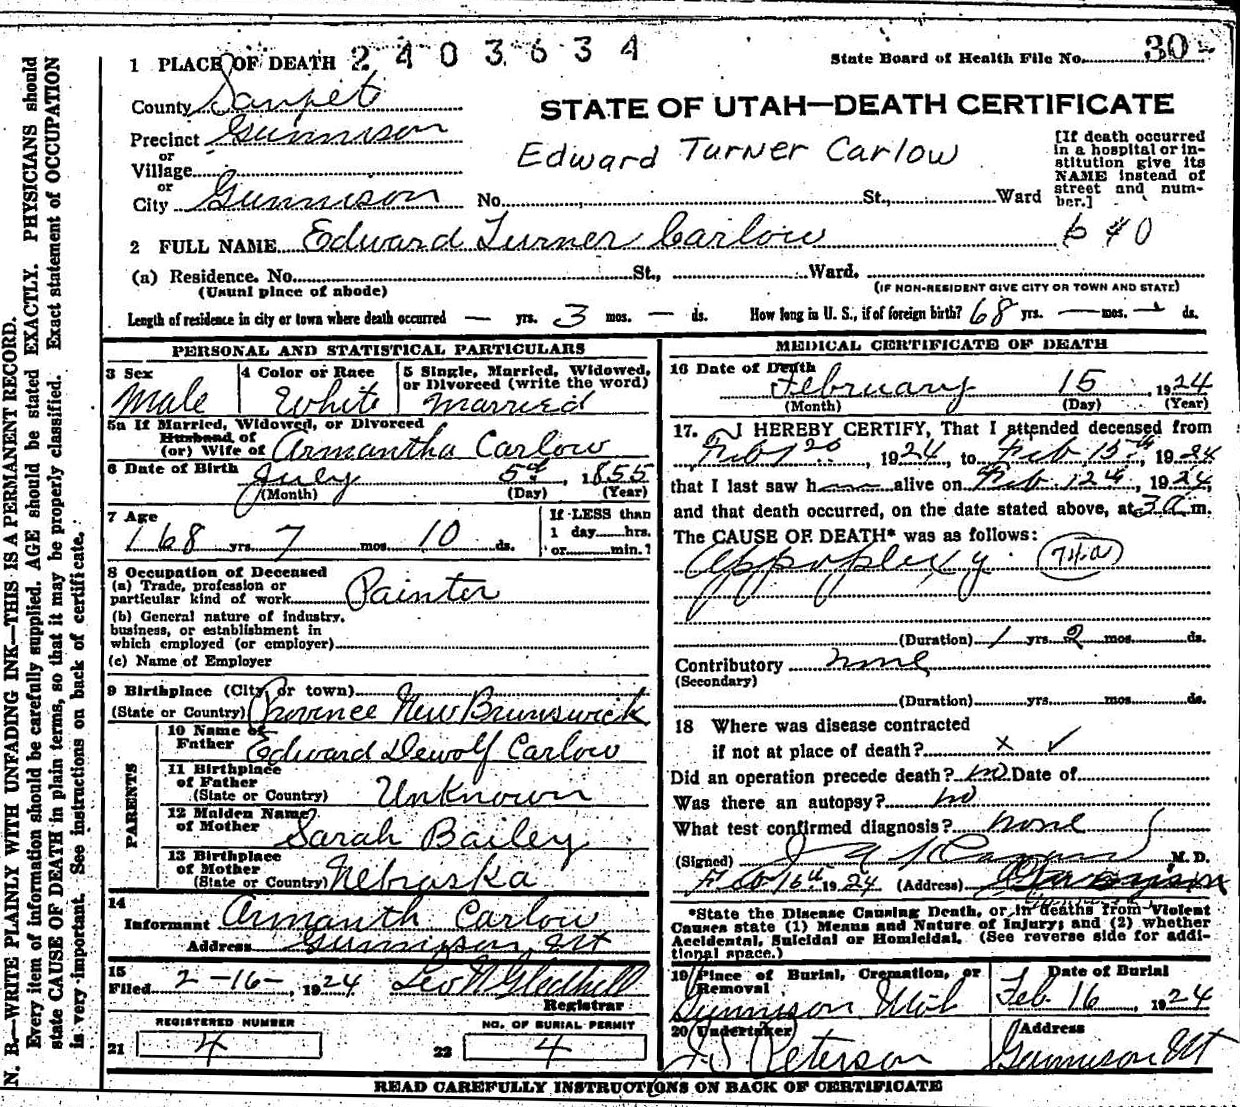 1 PLACE OF DEATH 2403634
State Board of Health File No. 30
County Sanpete
STATE OF UTAH—DEATH CERTIFICATE
Precinct Gunnison
or
Village
or
City Gunnison No. St., Ward
Edward Turner Carlow
[If death occurred
in a hospital or in-
stitution give its
NAME instead of
street and num-
ber.]
2 FULL NAME Edward Turner Carlow
640
(a) Residence. No. St., Ward.
(Usual place of abode) (IF NON-RESIDENT GIVE CITY OR TOWN AND STATE)
Length of residence in city or town where death occurred — yrs. 3 mos. — ds. How long in U. S., if of foreign birth? 68 yrs. — mos. ds.
PERSONAL AND STATISTICAL PARTICULARS
3 Sex
Male
4 Color or Race
White
5 Single, Married, Widowed,
or Divorced (write the word)
Married
5a If Married, Widowed, or Divorced
Husband of
(or) Wife of Armantha Carlow
6 Date of Birth July 5th, 1855
(Month) (Day) (Year)
7 Age
68 yrs. 7 mos. 10 ds.
If LESS than
1 day hrs.
or min.?
8 Occupation of Deceased
(a) Trade, profession or
particular kind of work Painter
(b) General nature of industry,
business, or establishment in
which employed (or employer)
(c) Name of Employer
9 Birthplace (City or town)
(State or Country) Province New Brunswick
PARENTS
10 Name of
Father Edward Dewolf Carlow
11 Birthplace
of Father
(State or Country) Unknown
12 Maiden Name
of Mother Sarah Bailey
13 Birthplace
of Mother
(State or Country) Nebraska
14
Informant Armanth Carlow
Address Gunnison, Ut
15
Filed 2-16-, 1924 Leo N Gledhill
Registrar
REGISTERED NUMBER
21 4
NO. OF BURIAL PERMIT
22 4
MEDICAL CERTIFICATE OF DEATH
16 Date of Death
February 15 1924
(Month) (Day) (Year)
17. I HEREBY CERTIFY, That I attended deceased from
Feb, 1924, to Feb 15th, 1924
that I last saw h alive on Feb 12th, 1924,
and that death occurred, on the date stated above, at 3 a m.
The CAUSE OF DEATH* was as follows:
Appoplexy. 74a
(Duration) 1 yrs. 2 mos. ds.
Contributory none
(Secondary)
(Duration) yrs. mos. ds.
18 Where was disease contracted
if not at place of death? x ✓
Did an operation precede death? no Date of
Was there an autopsy? no
What test confirmed diagnosis? none
(Signed) M. D.
Feb 16th 1924 (Address) Gunnison
*State the Disease Causing Death, or in deaths from Violent
Causes state (1) Means and Nature of Injury; and (2) whether
Accidental, Suicidal or Homicidal. (See reverse side for addi-
tional space.)
19 Place of Burial, Cremation, or
Removal
Gunnison Utah
Date of Burial
Feb 16, 1924
20 Undertaker
Peterson
Address
Gunnison Ut
READ CAREFULLY INSTRUCTIONS ON BACK OF CERTIFICATE
N. B.—WRITE PLAINLY WITH UNFADING INK—THIS IS A PERMANENT RECORD.
Every item of information should be carefully supplied. AGE should be stated EXACTLY. PHYSICIANS should
state CAUSE OF DEATH in plain terms, so that it may be properly classified. Exact statement of OCCUPATION
is very important. See instructions on back of certificate.